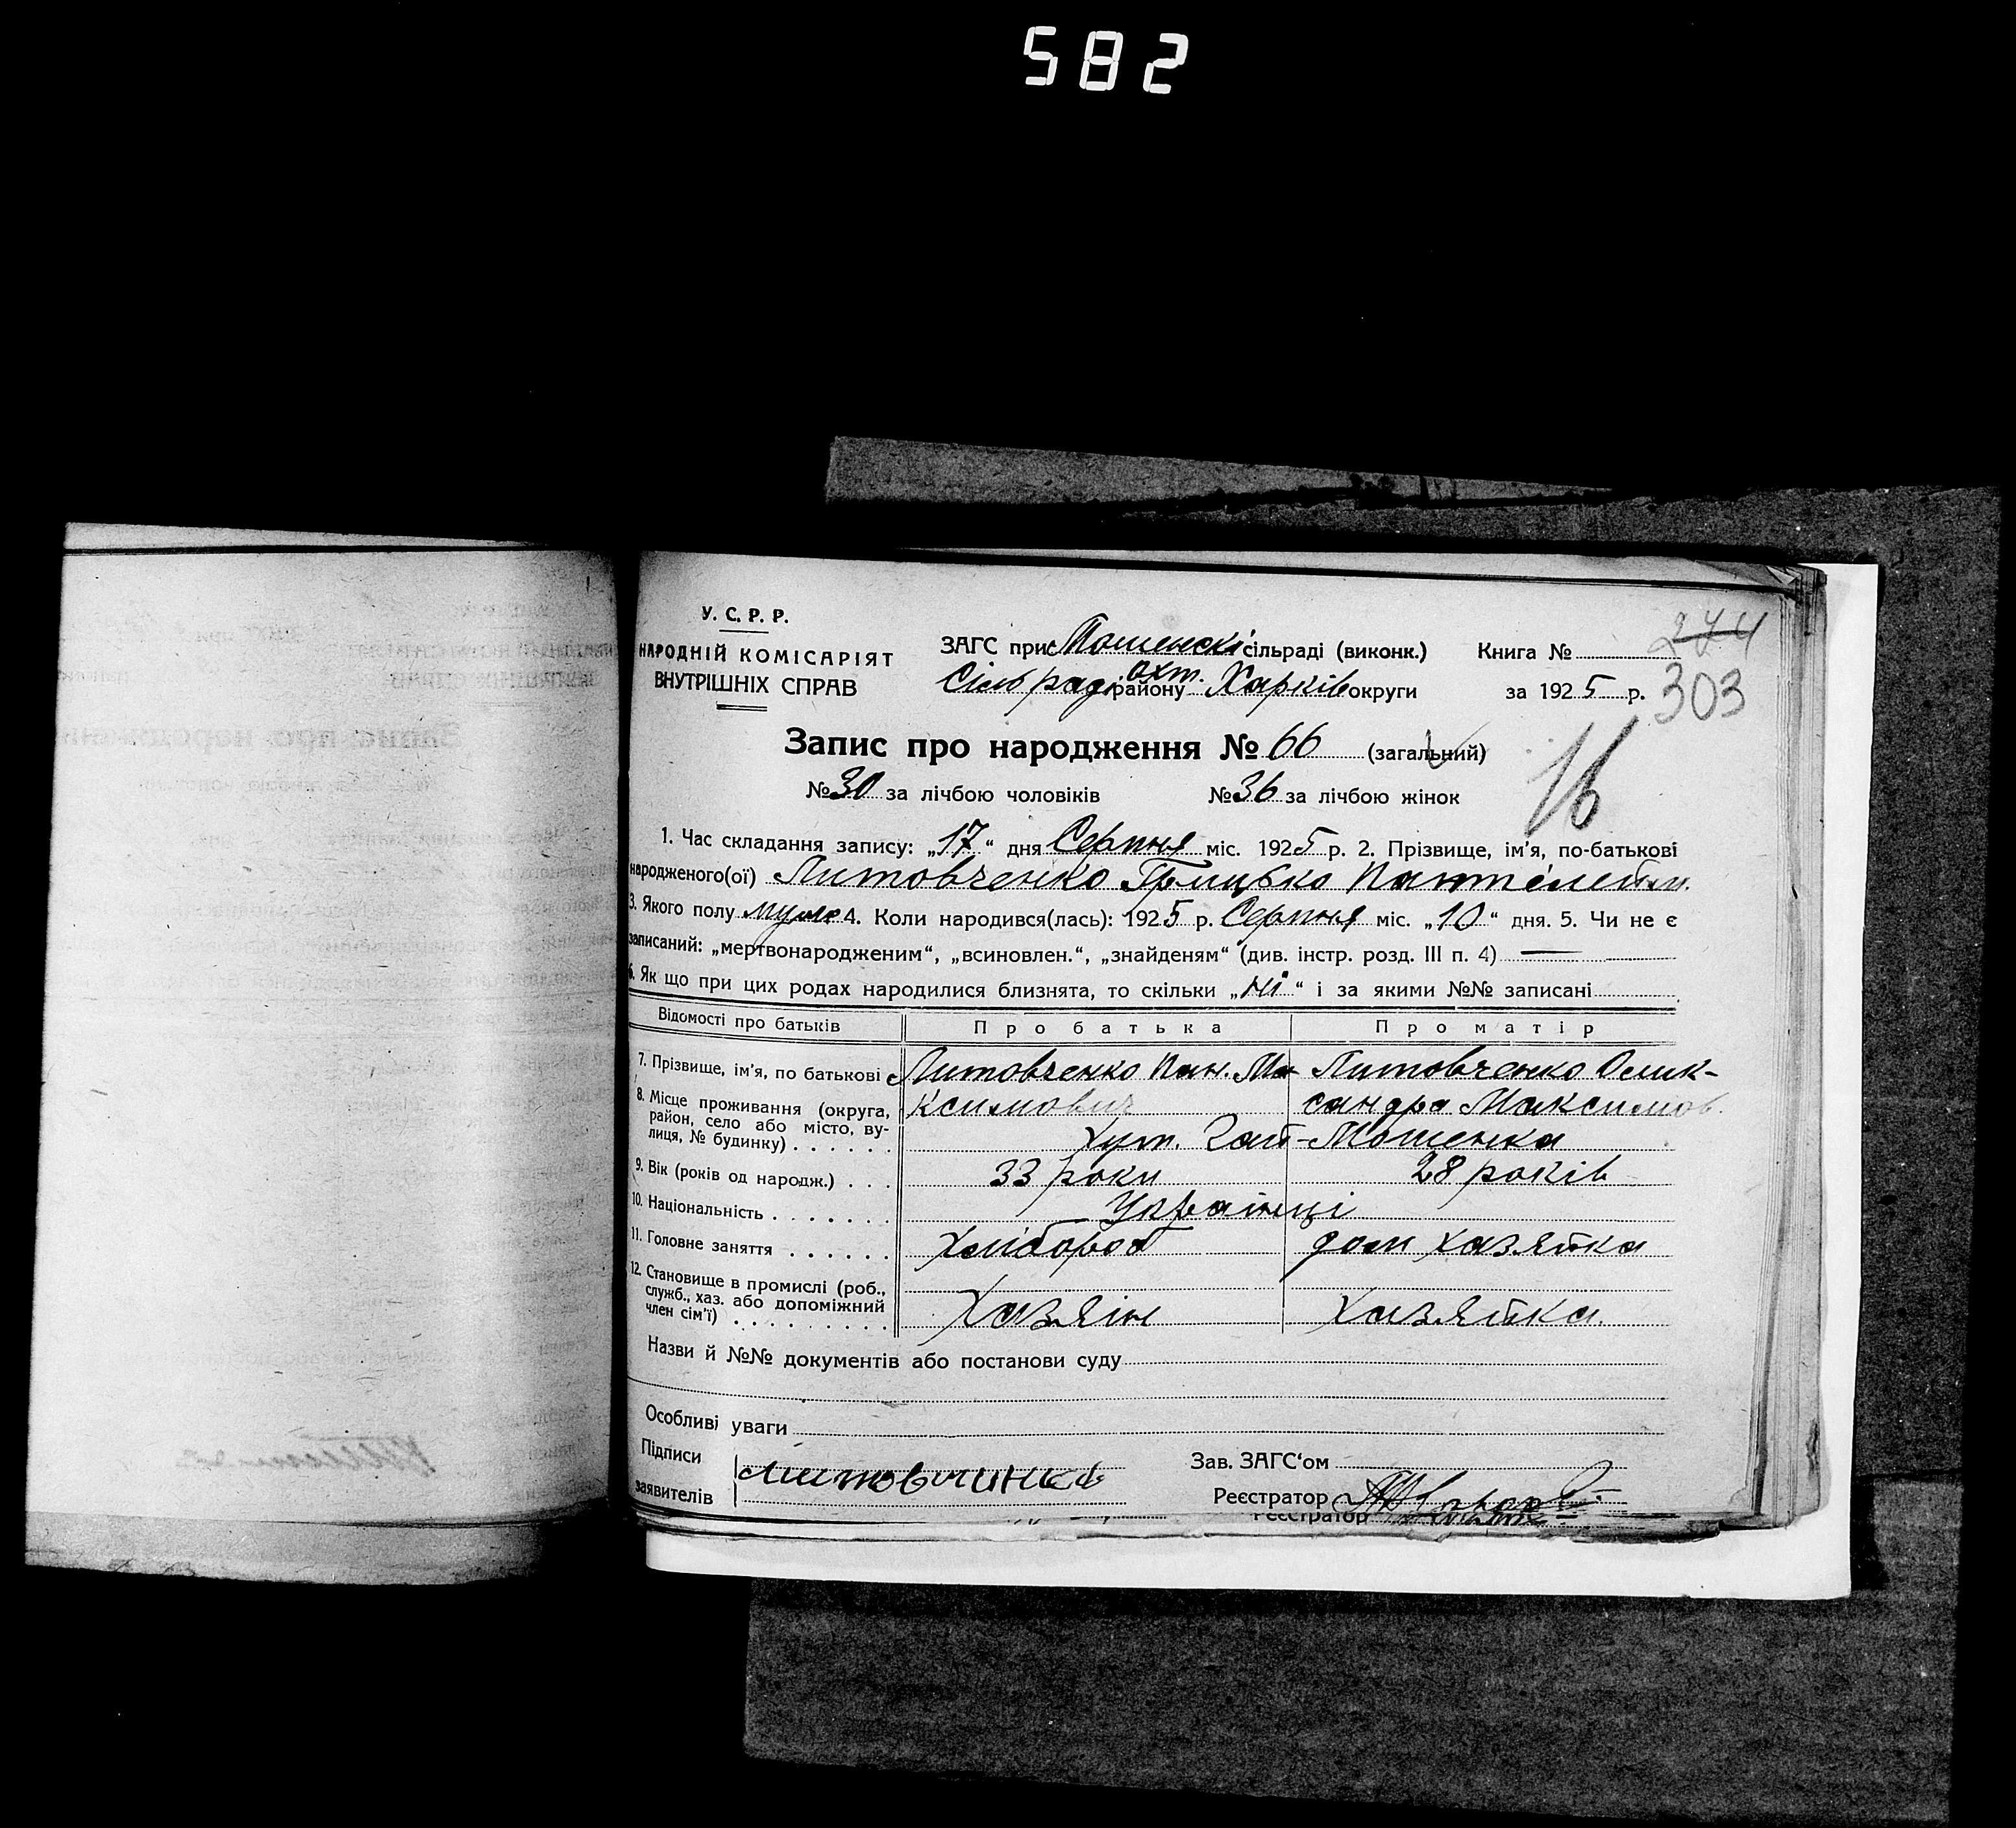 582
У. С. Р. Р.
НАРОДНІЙ КОМІСАРІЯТ
ВНУТРІШНІХ СПРАВ
ЗАГС при Мошенскі сільраді (виконк.)
Сільраді охт. району Харків округи
Книга №
за 1925 р.
274
303
Запис про народження № 66 (загальний)
16
№ 30 за лічбою чоловіків № 36 за лічбою жінок
1. Час складання запису: „17“ дня Серпня міс. 1925 р. 2. Прізвище, ім'я, по-батькові
народженого(ої) Литовченко Грицько Пантелейм.
3. Якого полу муж 4. Коли народився(лась): 1925 р. Серпня міс. „10“ дня. 5. Чи не є
записаний: „мертвонародженим“, „всиновлен.“, „знайденям“ (див. інстр. розд. III п. 4) —
6. Як що при цих родах народилися близнята, то скільки „ні“ і за якими №№ записані
Відомості про батьків Про батька Про матір
7. Прізвище, ім'я, по батькові Литовченко Пан. Ма Литовченко Олик-
ксимович сандра Максимов.
8. Місце проживання (округа,
район, село або місто, ву-
лиця, № будинку) . . . . . . Хут. Гай-Мошенка
9. Вік (років од народж.) . . . 33 роки 28 років
10. Національність . . . . . . . Українці
11. Головне заняття . . . . . . Хлібороб дом хазяйка
12. Становище в промислі (роб.,
служб., хаз. або допоміжний
член сім'ї) . . . . . . . . . Хазяін Хазяйка.
Назви й №№ документів або постанови суду
Особливі уваги
Підписи
заявителів
Литовчинко
Зав. ЗАГС'ом
Реєстратор
Реєстратор